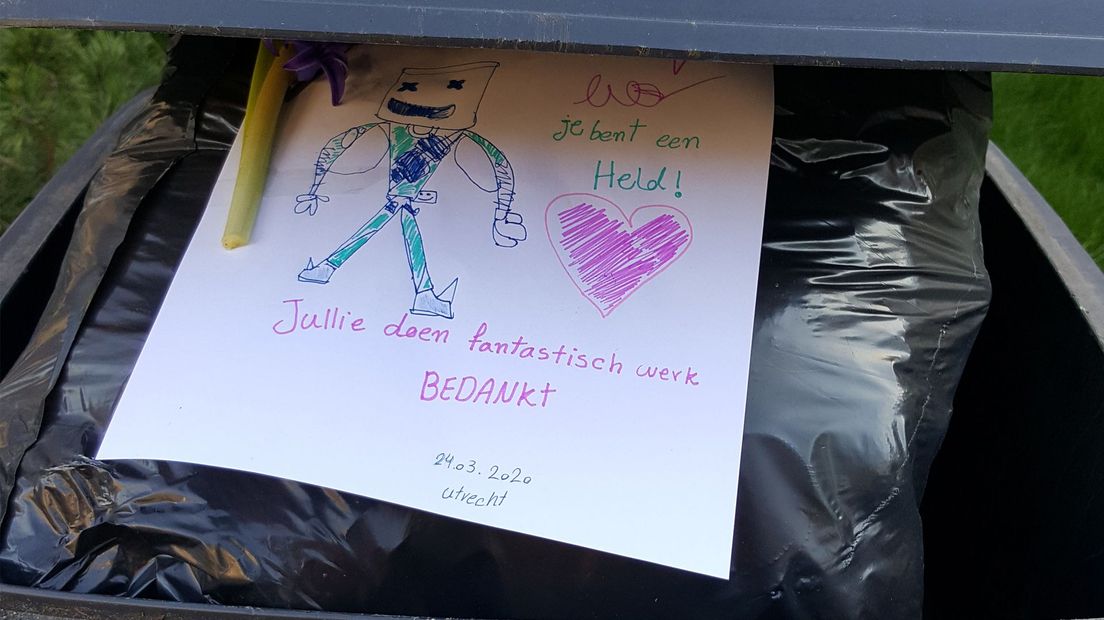 je bent een
Held!
Jullie doen fantastisch werk
BEDANKT
24.03.2020
utrecht